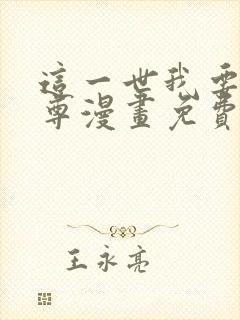 這一世我要
尊漫畫免費
王永亮